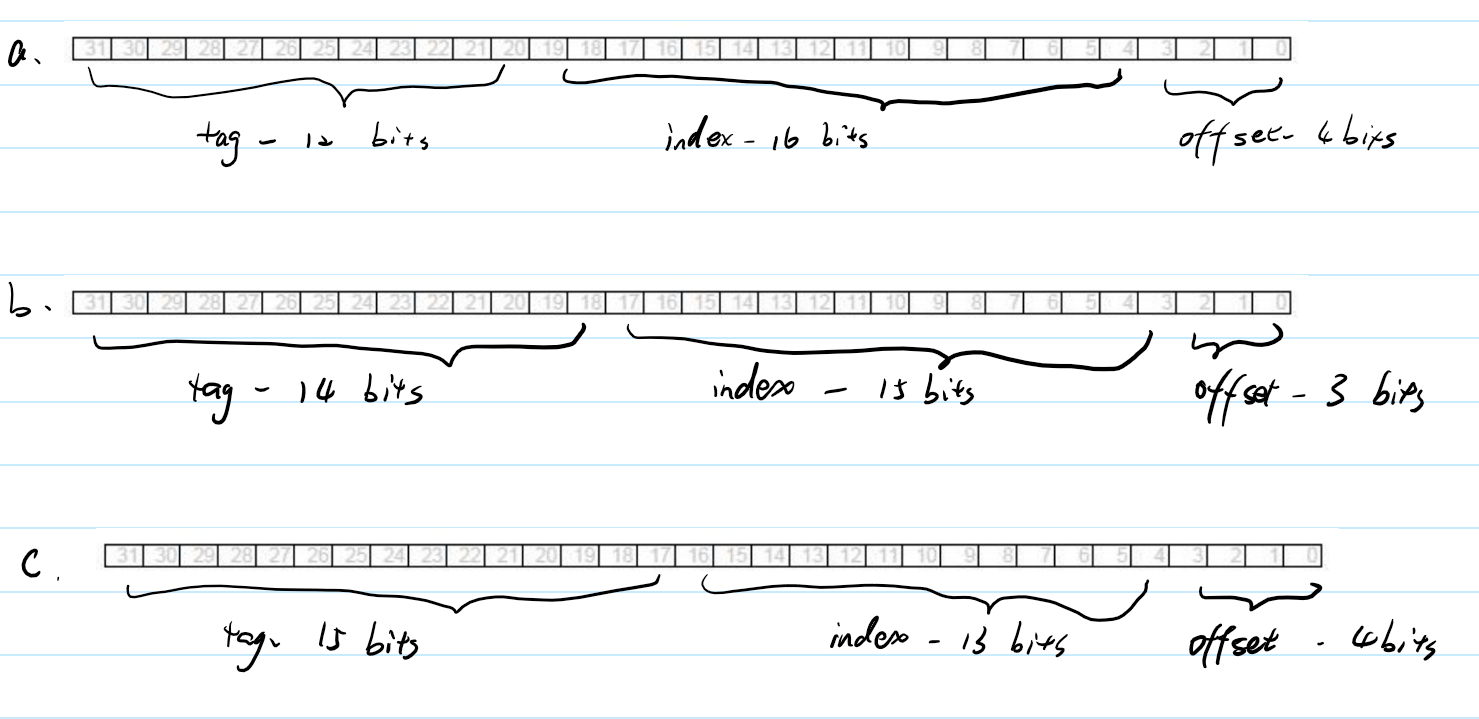 a. 31 30 29 28 27 26 25 24 23 22 21 20 19 18 17 16 15 14 13 12 11 10 9 8 7 6 5 4 3 2 1 0
tag - 12 bits index - 16 bits offset - 4 bits
b. 31 30 29 28 27 26 25 24 23 22 21 20 19 18 17 16 15 14 13 12 11 10 9 8 7 6 5 4 3 2 1 0
tag - 14 bits index - 15 bits offset - 3 bits
c. 31 30 29 28 27 26 25 24 23 22 21 20 19 18 17 16 15 14 13 12 11 10 9 8 7 6 5 4 3 2 1 0
tag - 15 bits index - 13 bits offset - 4 bits